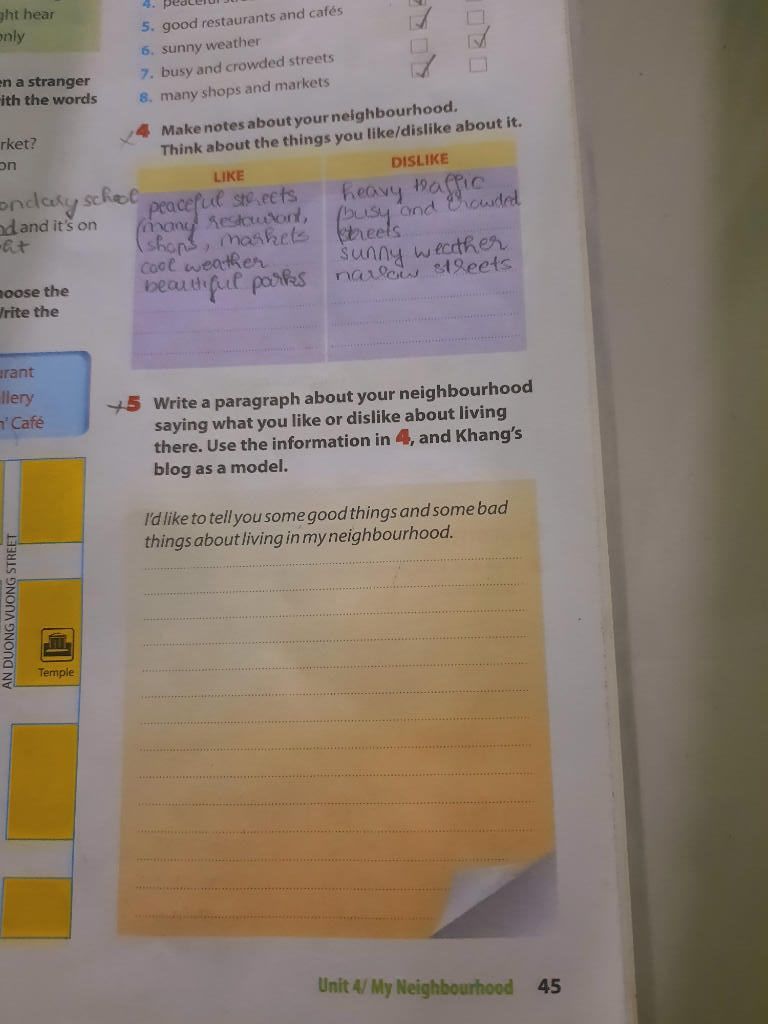 ght hear
only
en a stranger
ith the words
rket?
on
ondary school
nd and it's on
hoose the
Write the
urant
llery
n' Café
AN DUONG VUONG STREET
Temple
4. peaceful
5. good restaurants and cafés
6. sunny weather
7. busy and crowded streets
8. many shops and markets
4 Make notes about your neighbourhood.
Think about the things you like/dislike about it.
LIKE
peaceful streets
many restaurant,
shops, markets
cool weather
beautiful parks
DISLIKE
heavy traffic
busy and crowded
streets
sunny weather
narrow streets
5 Write a paragraph about your neighbourhood
saying what you like or dislike about living
there. Use the information in 4, and Khang's
blog as a model.
I'd like to tell you some good things and some bad
things about living in my neighbourhood.
Unit 4/ My Neighbourhood 45